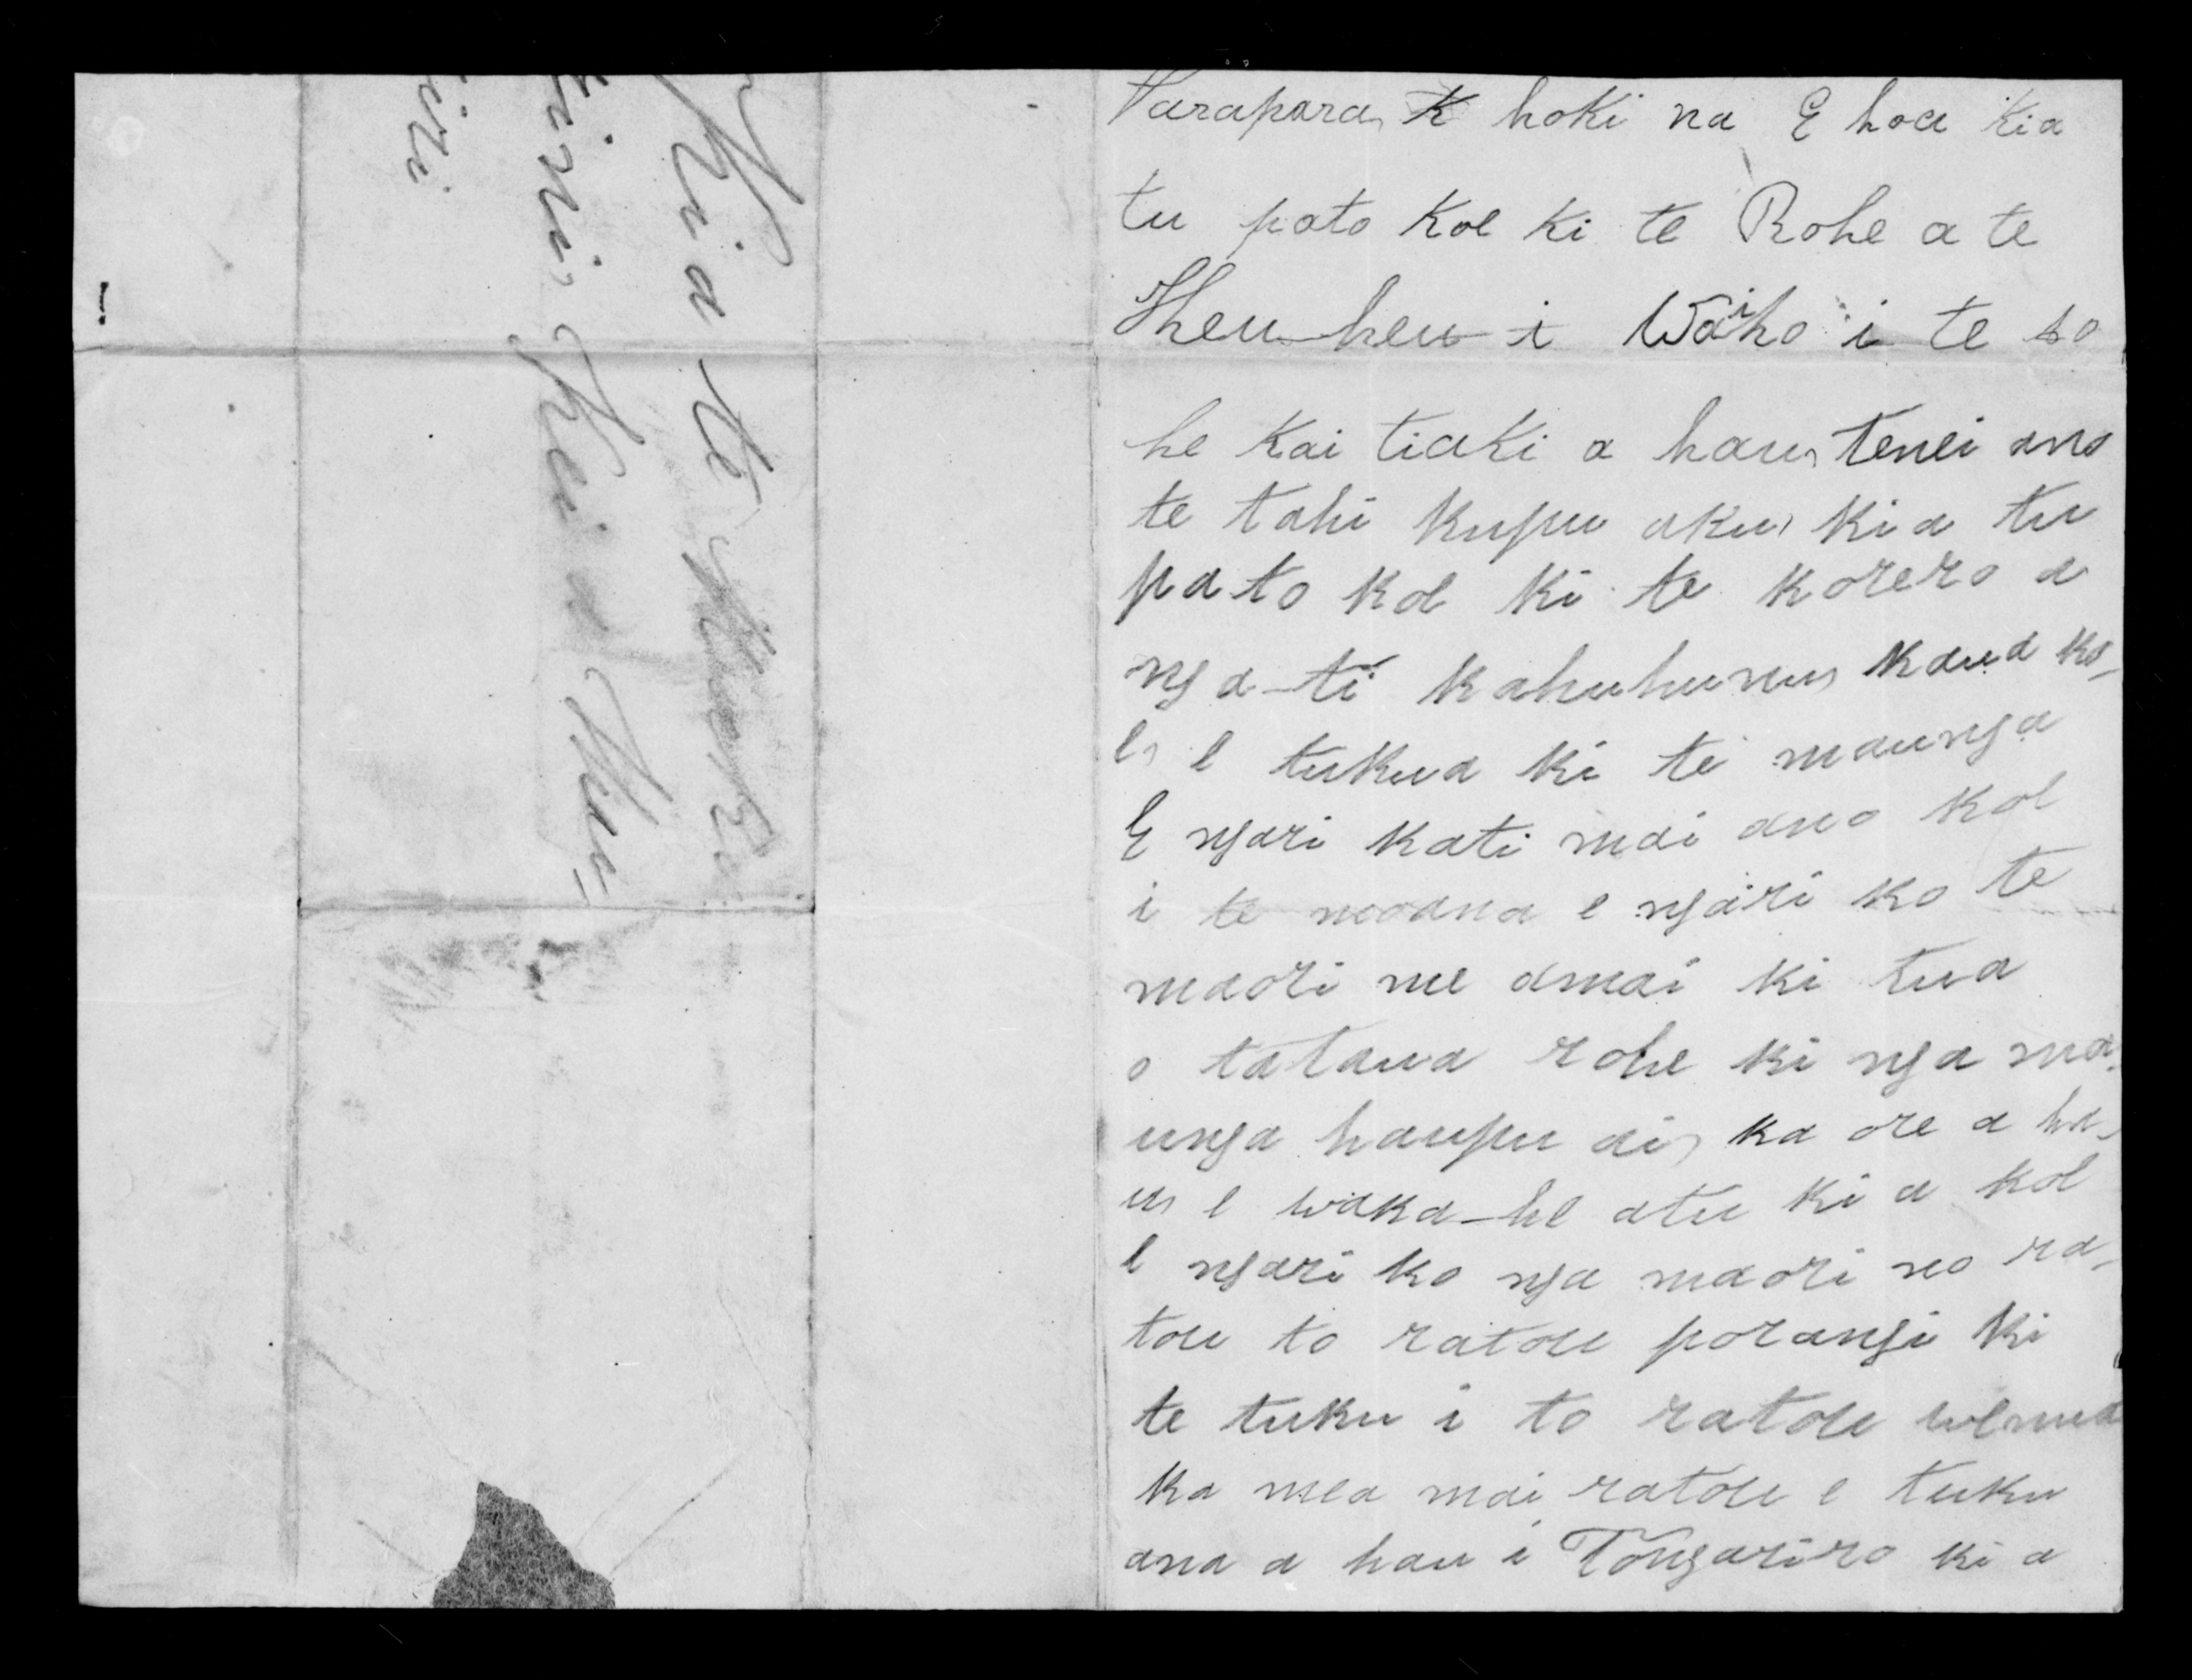 Kia te Ma
Kei a Mu-
iri
Tarapara, K hoki na E hoa kia
tu pato koe ki te Rohe a te
Heu-heu i Waiho i te ho
he kai tiaki a hau, tenei ano
te tahi kupu aku, kia tu
pato koe ki te korero a
nga-ti kahuhunu, kaua ko-
e, e tukua ki te maunga
E ngari kati mai ano koe
i te moana e ngari ko te
maori me amai ki tua
o tataua rohe ki nga ma-
unga haupu ai, ka ore a ha-
u, e waka-he atu ki a koe
e ngari ko nga maori no ra-
tou to ratou porangi ki
te tuku i to ratou wenua
ka mea mai ratou e tuku
ana a hau i Tongariro ki a